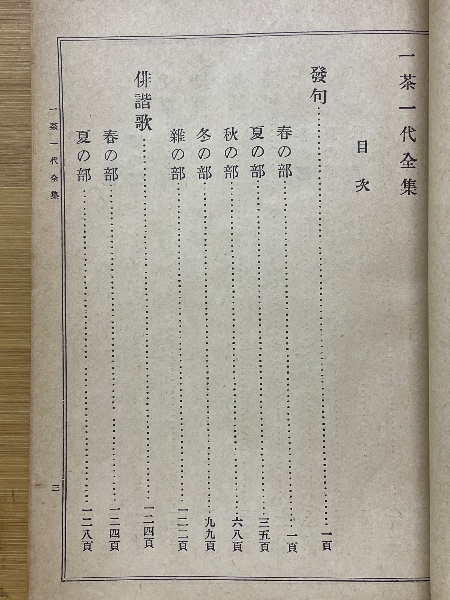 一茶一代全集
目次
發句…一頁
春の部…一頁
夏の部…三五頁
秋の部…六八頁
冬の部…九九頁
雜の部…一二二頁
俳諧歌…一二四頁
春の部…一二四頁
夏の部…一二八頁
一茶一代全集
三